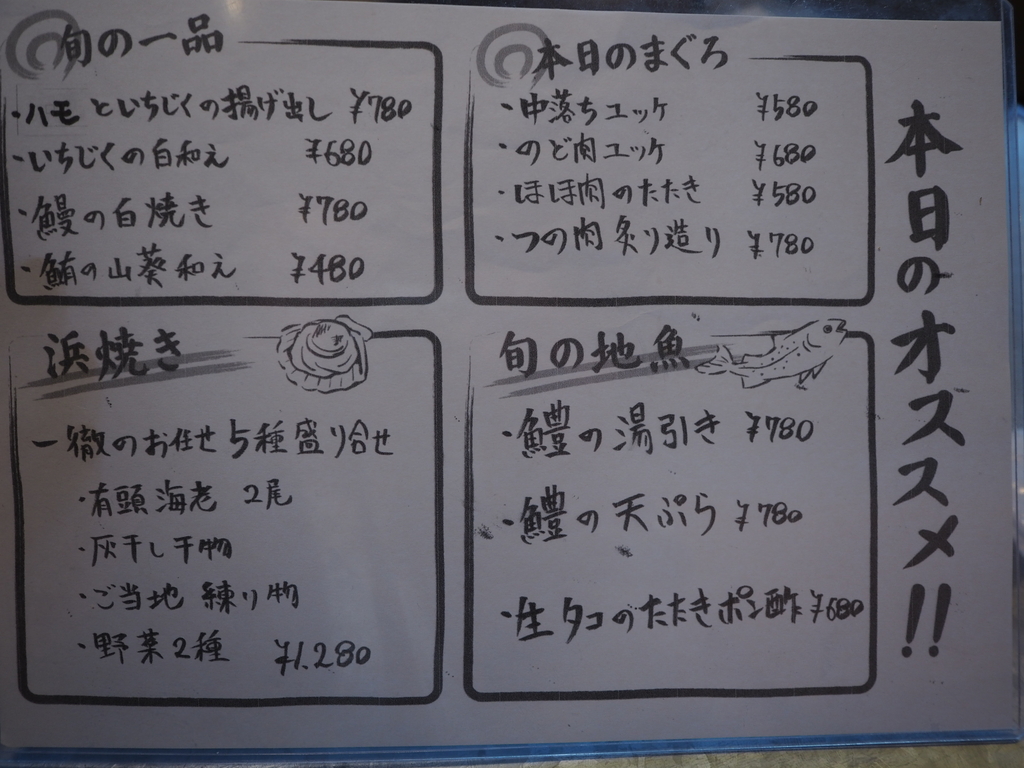 本日のオススメ!!
旬の一品
・ハモといちじくの揚げ出し ¥780
・いちじくの白和え ¥680
・鰻の白焼き ¥780
・鮪の山葵和え ¥480
本日のまぐろ
・中落ちユッケ ¥580
・のど肉ユッケ ¥680
・ほほ肉のたたき ¥580
・つの肉炙り造り ¥780
浜焼き
一徹のお任せ5種盛り合せ
・有頭海老 2尾
・灰干し干物
・ご当地 練り物
・野菜2種 ¥1,280
旬の地魚
・鱧の湯引き ¥780
・鱧の天ぷら ¥780
・生タコのたたきポン酢 ¥680